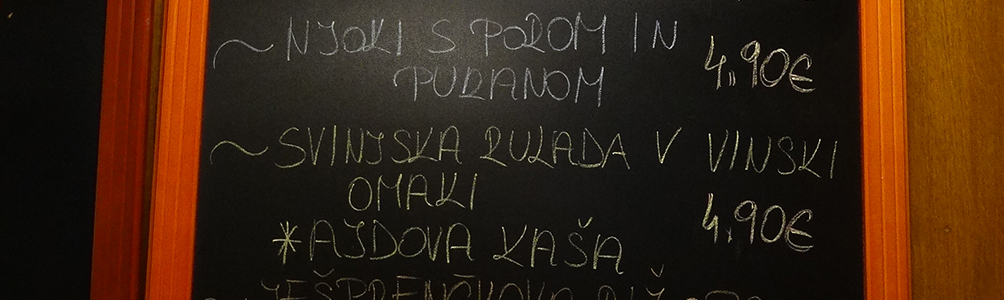 ~ NJOKI S POROM IN
PURANOM 4.90€
~ SVINJSKA RULADA V VINSKI
OMAKI 4.90€
* AJDOVA KAŠA